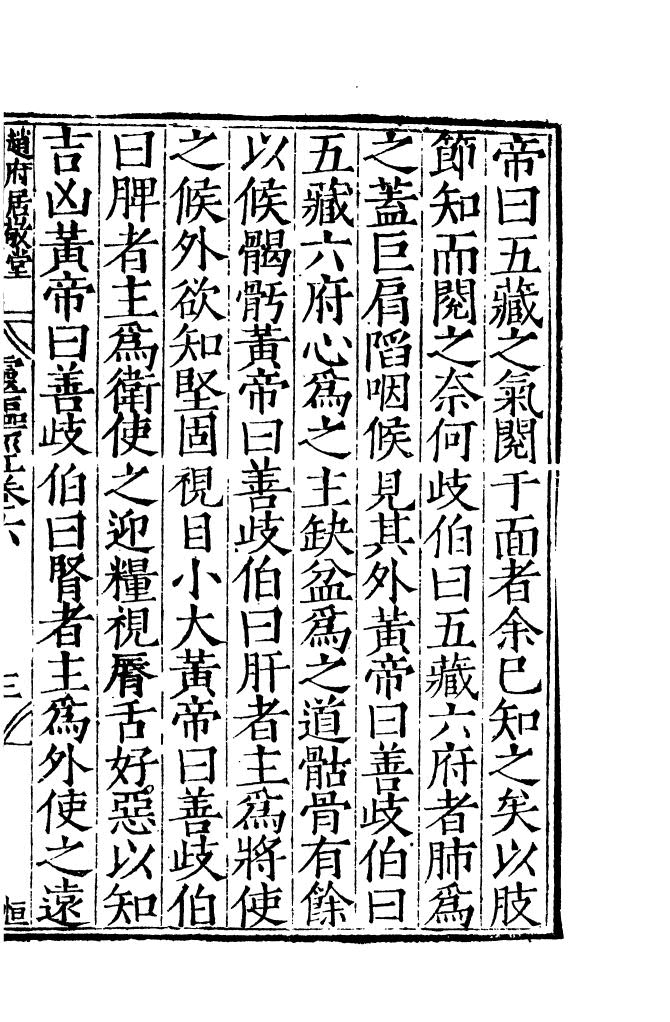 帝曰五藏之氣閱于面者余已知之矣以肢
節知而閱之柰何歧伯曰五藏六府者肺爲
之蓋巨肩陷咽候見其外黃帝曰善歧伯曰
五藏六府心爲之主缺盆爲之道骷骨有餘
以候𩩲骬黃帝曰善歧伯曰肝者主爲將使
之候外欲知堅固視目小大黃帝曰善歧伯
曰脾者主爲衛使之迎糧視脣舌好惡以知
吉凶黃帝曰善歧伯曰腎者主爲外使之遠
趙府居敬堂 靈樞經卷六 三 恒